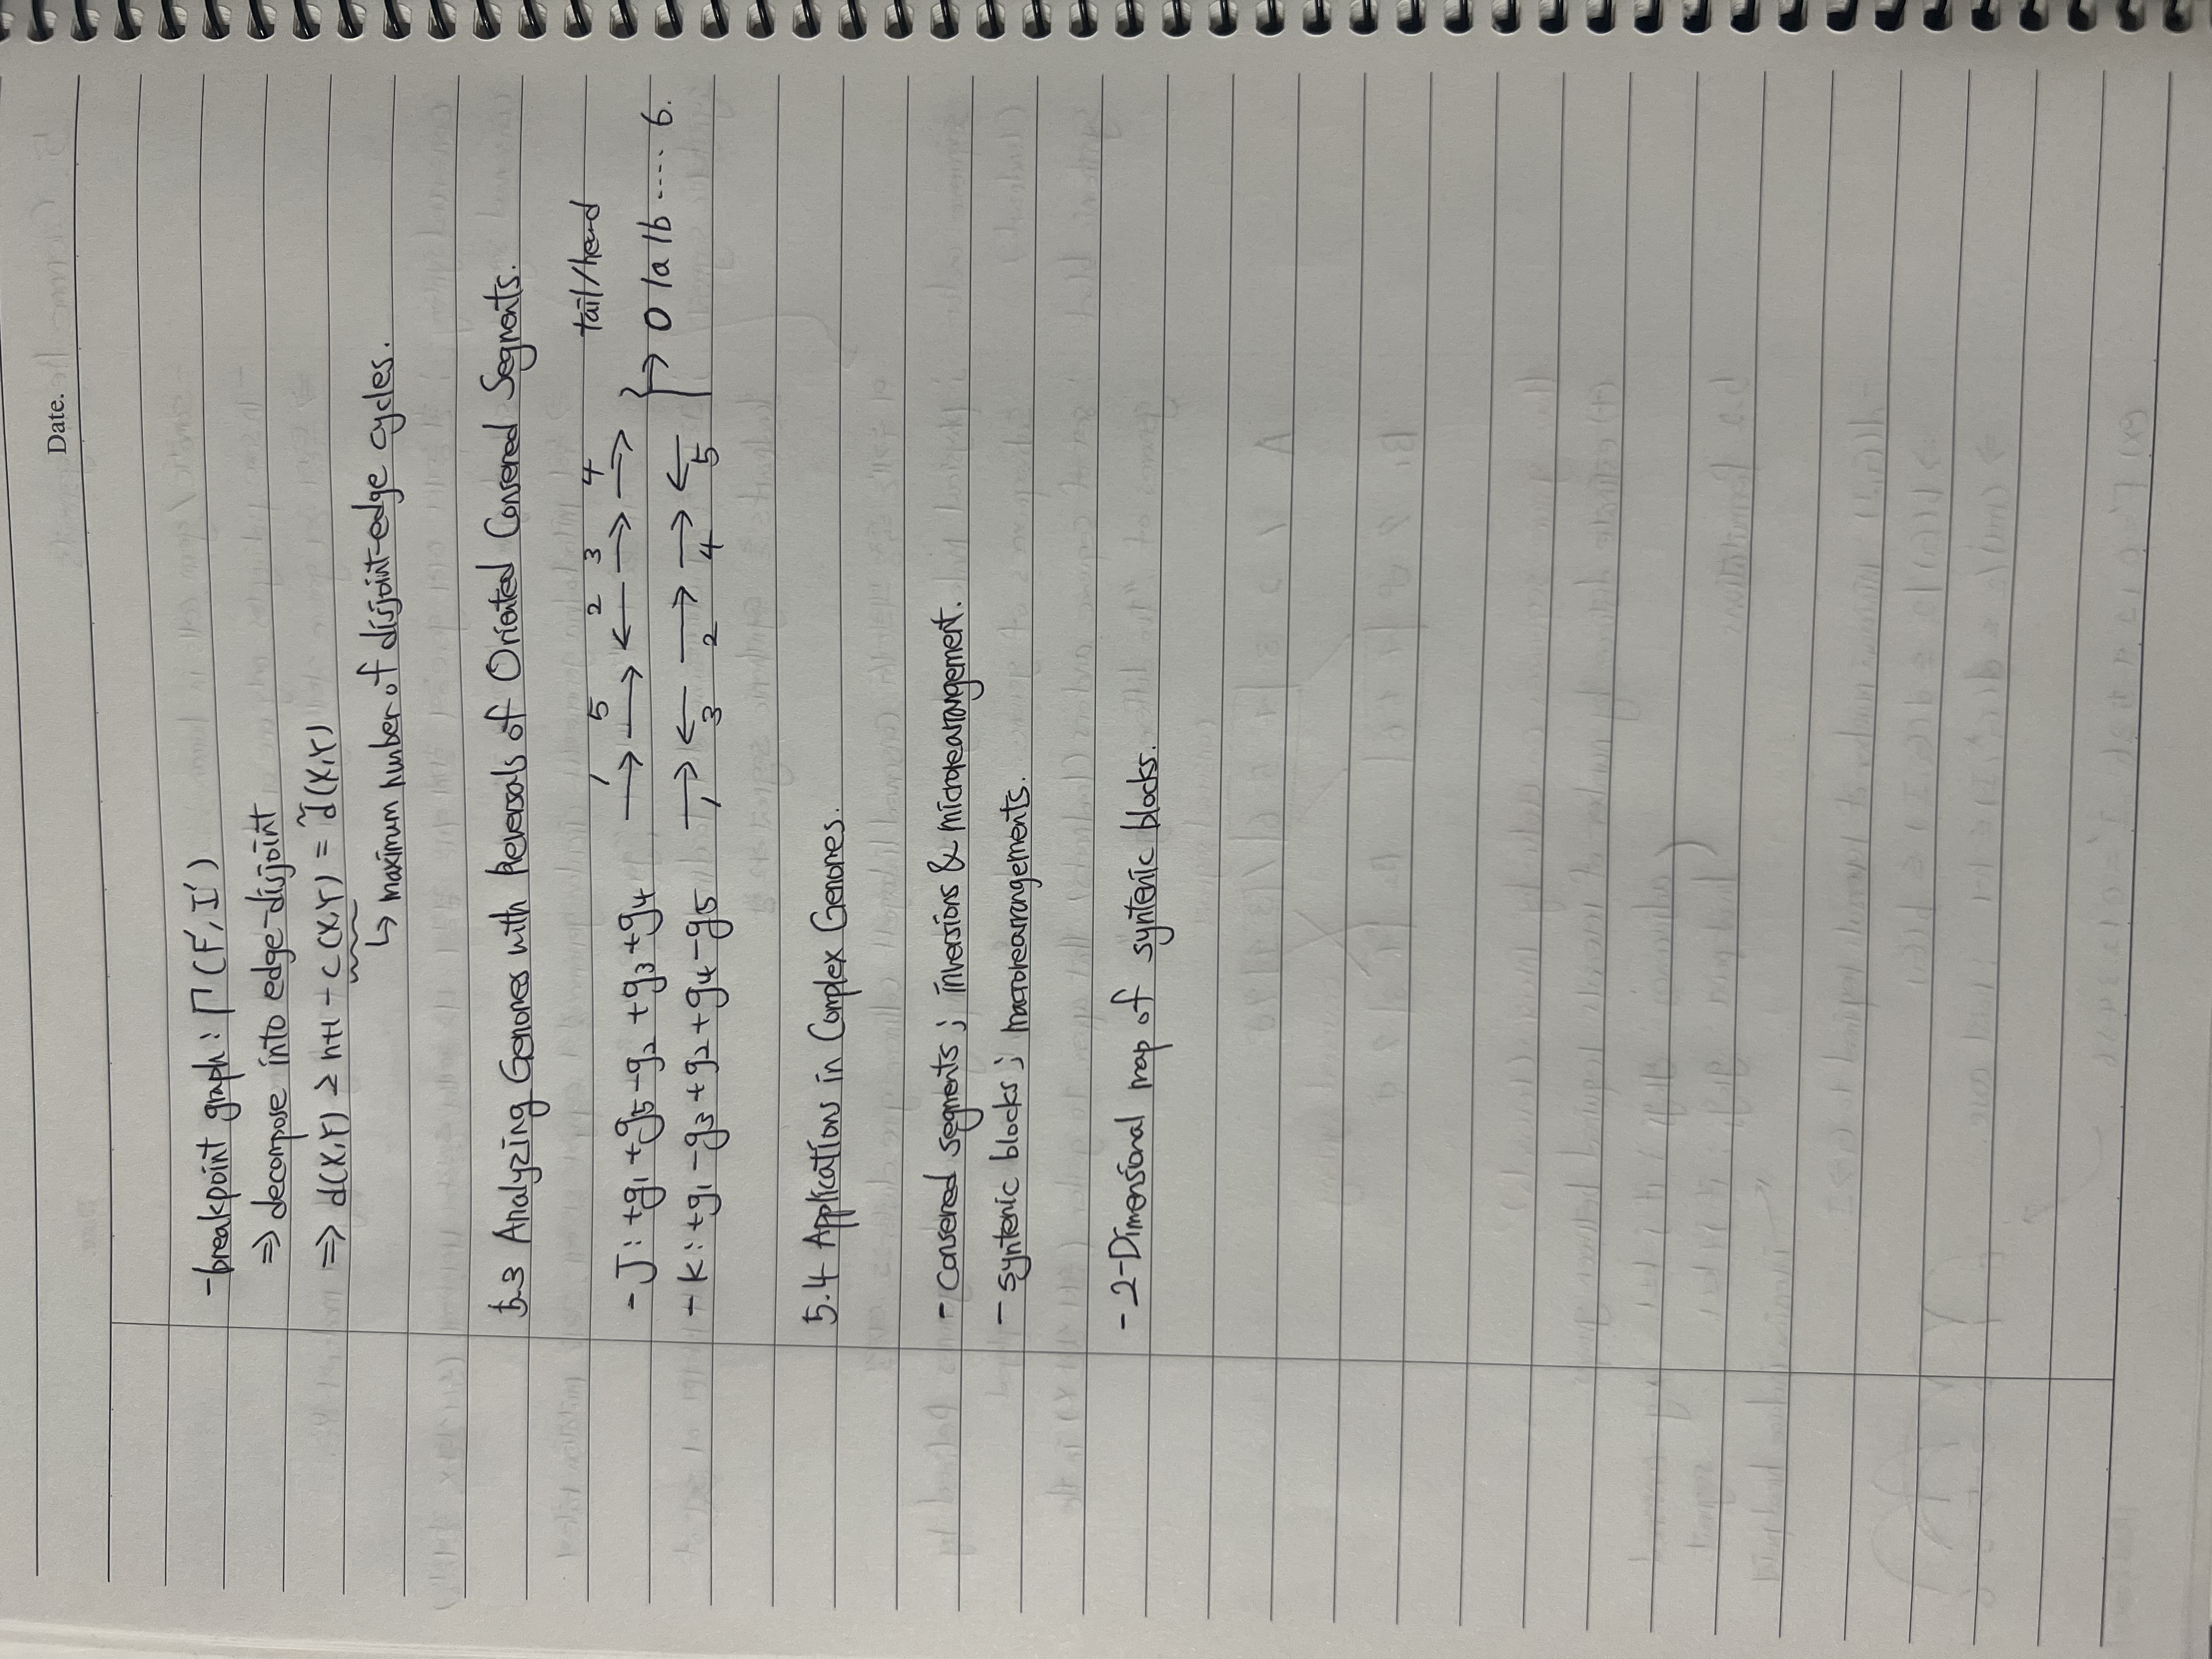 Date.
-breakpoint graph : Γ(F', I')
⇒ decompose into edge-disjoint
⇒ d(X,Y) ≥ n+1 - c(X,Y) = d̃(X,Y)
↳ maximum number of disjoint-edge cycles.
5.3 Analyzing Genomes with Reversals of Oriented Conserved Segments.
1 5 2 3 4 tail/head
- J : +g1 +g5 -g2 +g3 +g4 → → ← → → } → 0 1a 1b ..... 6.
- K : +g1 -g3 +g2 +g4 -g5 → ← → → ←
1 3 2 4 5
5.4 Applications in Complex Genomes.
- Conserved segments ; inversions & microrearrangement.
- syntenic blocks ; macrorearrangements.
- 2-Dimensional map of syntenic blocks.